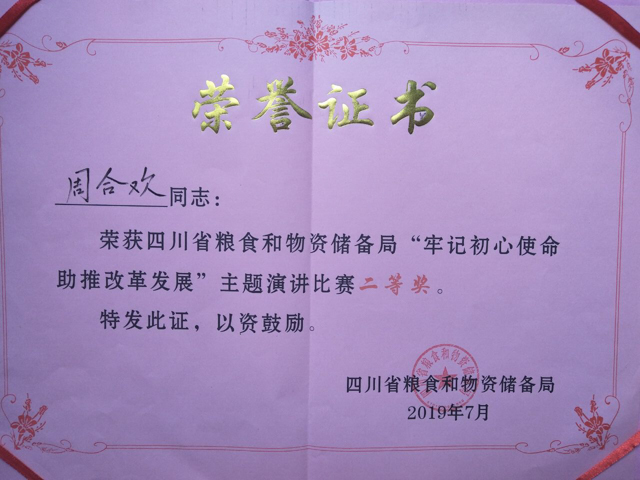 荣誉证书
周合欢同志：
荣获四川省粮食和物资储备局“牢记初心使命
助推改革发展”主题演讲比赛二等奖。
特发此证，以资鼓励。
四川省粮食和物资储备局
2019年7月